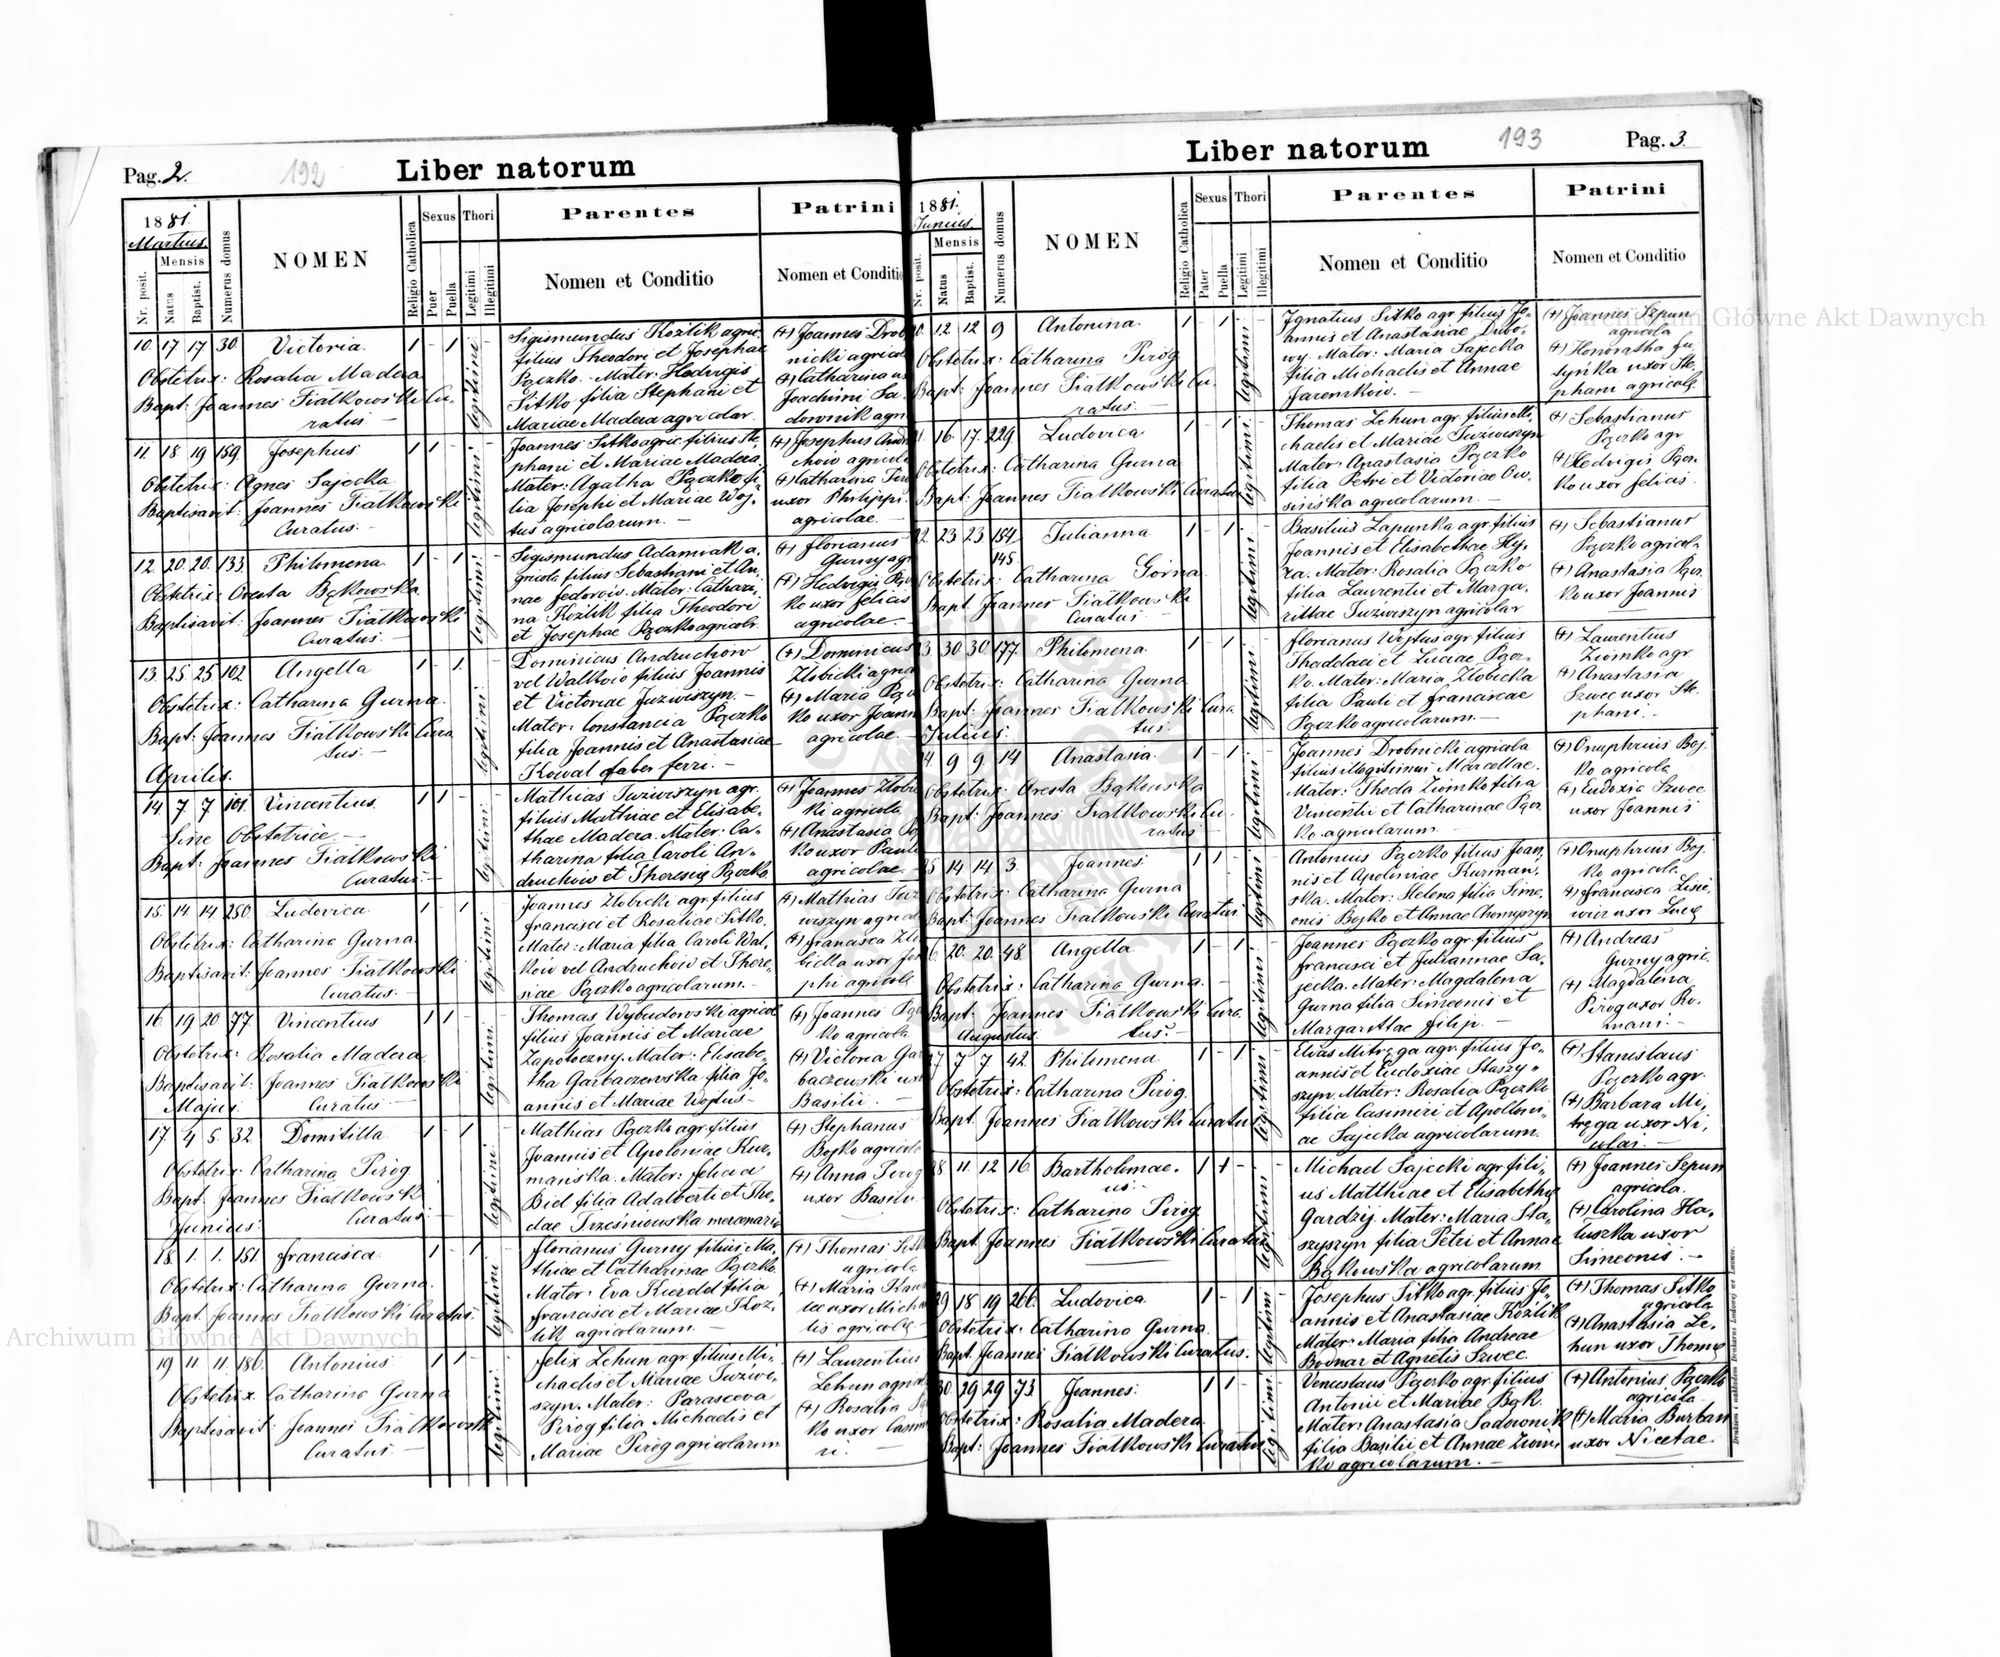 Pag. 2.
192
Liber natorum
1881.
Martius.
Mensis
Nr. posit.
Natus
Baptist.
Numerus domus
NOMEN
Religio Catholica
Sexus
Puer
Puella
Thori
Legitimi
Illegitimi
Parentes
Nomen et Conditio
Patrini
Nomen et Conditio
10. 17 17 30. Victoria. 1 - 1 - legitimi
Obstetrix: Rosalia Madera
Bapt: Joannes Fiałkowski Cu-
ratus. -
Sigismundus Kozlik agric.
filius Theodori et Josephae
Pączko. - Mater: Hedvigis
Sitko filia Stephani et
Mariae Madera agricolar.
(+) Joannes Drob
nicki agricol
(+) Catharina
Joachimi Sa-
downik agri
11. 18 19 159. Josephus 1 1 - legitimi
Obstetrix: Agnes Sajecka
Baptisavit: Joannes Fiałkowski
Curatus. -
Joannes Sitko agric. filius Ste-
phani et Mariae Madera.
Mater: Agatha Pączko fi-
lia Josephi et Mariae Woj-
tus agricolarum. -
(+) Josephus
(+) Catharina
uxor Philippi
agricolae. -
12. 20. 20. 133. Philomena. 1 - 1 - legitimi
Obstetrix: Oresta Bąkowska.
Baptisavit: Joannes Fiałkowski
Curatus. -
Sigismundus Adamiak a-
gricola filius Sebastiani et An-
nae Fedorów. Mater: Cathari-
na Kozlik filia Theodori
et Josephae Pączko agricolr.
(+) Florianus
Gurny agr
(+) Hedvigis Pącz
ko uxor Felicis
agricolae. -
13. 25. 25 102 Angella 1 - 1. - legitimi
Obstetrix: Catharina Gurna.
Bapt: Joannes Fiałkowski Cura
tus. -
Dominicus Andruchow
vel Walków filius Joannis
et Victoriae Juzwiszyn. -
Mater: Constancia Pączko
filia Joannis et Anastasiae
Kowal faber ferri. -
(+) Dominicus
Złobicki agri
(+) Maria Pącz
ko uxor Joann
agricolae. -
Aprilis.
14. 7 7 101. Vincentius. 1 1 - legitimi
Sine Obstetrice -
Bapt: Joannes Fiałkowski
Curatus. -
Mathias Juzwiszyn agr.
filius Mathiae et Elisabe-
thae Madera. Mater: Ca-
tharina filia Caroli An-
druchow et Theresię Pączko.
(+) Joannes Złobic
ki agricola
(+) Anastasia
ko uxor Pauli
agricolae.
15. 14. 14 250. Ludovica. 1 - 1 - legitimi
Obstetrix: Catharina Gurna.
Baptisavit: Joannes Fiałkowski
Curatus. -
Joannes Złobicki agr. filius
Francisci et Rosaliae Sitko.
Mater: Maria filia Caroli Wal-
ków vel Andruchow et There-
siae Pączko agricolarum. -
(+) Mathias Juz
wiszyn agricol
(+) Francisca Zło
bicka uxor Jos
phi agricolę
16. 19 20. 77. Vincentius 1 1 - legitimi
Obstetrix: Rosalia Madera.
Baptisavit: Joannes Fiałkowski
Curatus -
Thomas Wybudowski agricol
filius Joannis et Mariae
Zapotoczny. Mater: Elisabe-
tha Garbaczewska filia Jo-
annis et Mariae Wojtus -
(+) Joannes
ko agricola
(+) Victoria Gar
baczewski ux
Basilii. -
Majus.
17. 4 5. 32 Domitilla 1 - 1 - legitimi
Obstetrix: Catharina Piróg
Bapt. Joannes Fiałkowski
Curatus. -
Mathias Pączko agr. filius
Joannis et Apoloniae Kur-
mańska. Mater: Felicia
Bid filia Adalberti et The-
clae Trześniowska mercenari
(+) Stephanus
Bojko agricol
(+) Anna Pirog
uxor Basilii
Junius:
18. 1. 1. 151. Francisca. 1 - 1 - legitimi
Obstetrix: Catharina Gurna.
Bapt. Joannes Fiałkowski Curatus.
Florianus Gurny filius Ma-
thiae et Catharinae Pączko.
Mater: Eva Kierdel filia
Francisci et Mariae Koz-
lik agricolarum. -
(+) Thomas
agricola
(+) Maria
uxor Mich
lis agricolę
19 11 11. 186. Antonius 1 1 - legitimi
Obstetrix: Catharina Gurna
Baptisavit: Joannes Fiałkowski
Curatus. -
Felix Lehun agr. filius Mi-
chaelis et Mariae Juzwi-
szyn. Mater: Parasceva
Piróg filia Michaelis et
Mariae Piróg agricolarum
(+) Laurentius
Lehun agricol
(+) Rosalia
ko uxor Casim
ri. -
Liber natorum
193
Pag. 3.
1881.
Junius.
Mensis
Nr. posit.
Natus
Baptist.
Numerus domus
NOMEN
Religio Catholica
Sexus
Pater
Puella
Thori
Legitimi
Illegitimi
Parentes
Nomen et Conditio
Patrini
Nomen et Conditio
20. 12 12 9 Antonina. 1 - 1 - legitimi
Obstetrix: Catharina Piróg
Bapt: Joannes Fiałkowski Cu-
ratus. -
Ignatius Sitko agr. filius Jo-
annis et Anastasiae Dubo-
wy. Mater: Maria Sajecka
filia Michaelis et Annae
Jaremków. -
(+) Joannes Szpun
agricola
(+) Honoratha
uxor Ste-
phani agricolę.
21. 16. 17. 229. Ludovica 1 - 1 - legitimi
Obstetrix: Catharina Gurna
Bapt: Joannes Fiałkowski Curatus
Thomas Lehun agr. filius Mi-
chaelis et Mariae Juzwiszyn
Mater: Anastasia Pączko
filia Petri et Victoriae Ow-
sińska agricolarum. -
(+) Sebastianus
Pączko agr
(+) Hedvigis Pącz-
ko uxor Felicis.
22. 23 23 184. Julianna. 1 - 1 - legitimi
145
Obstetrix: Catharina Górna
Bapt. Joannes Fiałkowski
Curatus
Basilius Łapunka agr. filius
Joannis et Elisabethae Hy-
ra. Mater: Rosalia Pączko
filia Laurentii et Marga-
rittae Juzwiszyn agricolar
(+) Sebastianus
Pączko agricola
(+) Anastasia Pącz-
ko uxor Joannis
23 30. 30 177. Philomena. 1 - 1 - legitimi
Obstetrix: Catharina Gurna
Bapt: Joannes Fiałkowski Cura
tus.
Florianus Wojtus agr. filius
Thaddaei et Luciae Pącz-
ko. Mater: Maria Złobicka
filia Pauli et Franciscae
Pączko agricolarum. -
(+) Laurentius
Ziomko agr
(+) Anastasia
Szwec uxor Ste-
phani. -
Julius.
24. 9 9. 14 Anastasia. 1 - 1 - legitimi
Obstetrix: Oresta Bąkowska
Bapt: Joannes Fiałkowski Cu-
ratus -
Joannes Drobnicki agricola
filius illegitimus Marcellae.
Mater: Thecla Ziomko filia
Vincentii et Catharinae Pącz
ko agricolarum. -
(+) Onuphrius Boj-
ko agricola
(+) Eudoxia Szwec
uxor Joannis
25 14 14 3. Joannes 1 1 - legitimi
Obstetrix: Catharina Gurna
Bapt: Joannes Fiałkowski Curatus
Antonius Pączko filius Joan-
nis et Apoloniae Kurman-
ska. Mater: Helena filia Sime-
onis Bojko et Annae Chomyszyn
(+) Onuphrius Boj-
ko agricola
(+) Francisca Lisie-
wicz uxor Lucę
26. 20. 20. 48. Angella 1 - 1 - legitimi
Obstetrix: Catharina Gurna.
Bapt. Joannes Fiałkowski Cura-
tus. -
Joannes Pączko agr. filius
Francisci et Juliannae Sa-
jecka. Mater: Magdalena
Gurna filia Simeonis et
Margarittae Filip. -
(+) Andreas
Gurny agric.
(+) Magdalena
Pirog uxor Ro-
mani. -
Augustus.
27 7 7. 42. Philomena 1 - 1 - legitimi
Obstetrix: Catharina Piróg.
Bapt. Joannes Fiałkowski Curatus
Elias Mitręga agr. filius Jo-
annis et Eudoxiae Staszy-
szyn. Mater: Rosalia Pączko
filia Casimiri et Apolloni-
ae Sajecka agricolarum.
(+) Stanislaus
Pączko agr.
(+) Barbara Mi-
tręga uxor Ni-
colai. -
28 11. 12 16. Bartholomae- 1 1 - legitimi
us. -
Obstetrix: Catharina Piróg
Bapt. Joannes Fiałkowski Curatus
Michael Sajecki agr. fili-
us Matthiae et Elisabethę
Gardzij. Mater: Maria Sta-
szyszyn filia Petri et Annae
Bąkowska agricolarum
(+) Joannes Szpun
agricola.
(+) Carolina Ha-
luszka uxor
Simeonis. -
29 18 19 266. Ludovica. 1 - 1 legitimi
Obstetrix: Catharina Gurna.
Bapt. Joannes Fiałkowski Curatus.
Josephus Sitko agr. filius Jo-
annis et Anastasiae Kozlik
Mater: Maria filia Andreae
Bodnar et Agnetis Szwec.
(+) Thomas Sitko
agricola
(+) Anastasia Le-
hun uxor Thomę
30. 29 29 73. Joannes. 1 1 - legitimi
Obstetrix: Rosalia Madera.
Bapt: Joannes Fiałkowski Curatus
Venceslaus Pączko agr. filius
Antonii et Mariae Bąk.
Mater: Anastasia Sadownik
filia Basilii et Annae Ziom-
ko agricolarum. -
(+) Antonius Pączko
agricola
(+) Maria Burban
uxor Nicetae.
Drukiem i nakładem Drukarni Ludowej we Lwowie.
Archiwum Główne Akt Dawnych
Archiwum Główne Akt Dawnych